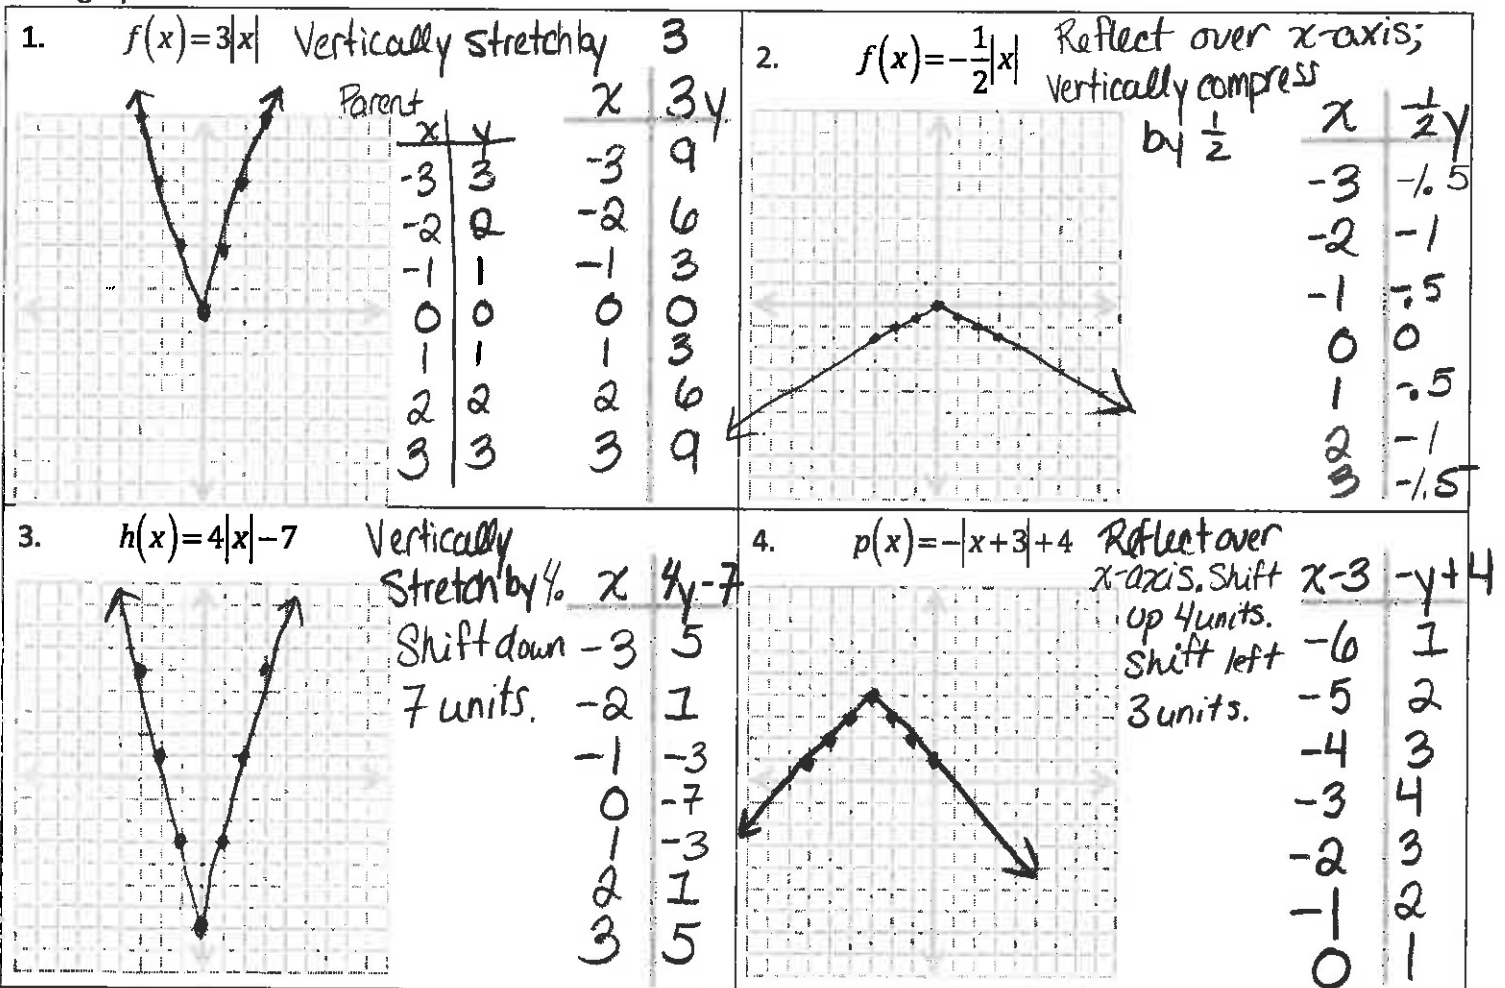 1. f(x)=3|x| Vertically stretch by 3
Parent
x y
-3 3
-2 2
-1 1
0 0
1 1
2 2
3 3
x 3y
-3 9
-2 6
-1 3
0 0
1 3
2 6
3 9
2. f(x)=-1/2|x| Reflect over x-axis;
vertically compress
by 1/2
x -1/2y
-3 -1.5
-2 -1
-1 -.5
0 0
1 -.5
2 -1
3 -1.5
3. h(x)=4|x|-7 Vertically
Stretch by 4.
Shift down
7 units.
x 4y-7
-3 5
-2 1
-1 -3
0 -7
1 -3
2 1
3 5
4. p(x)=-|x+3|+4 Reflect over
x-axis. Shift
up 4 units.
Shift left
3 units.
x-3 -y+4
-6 1
-5 2
-4 3
-3 4
-2 3
-1 2
0 1